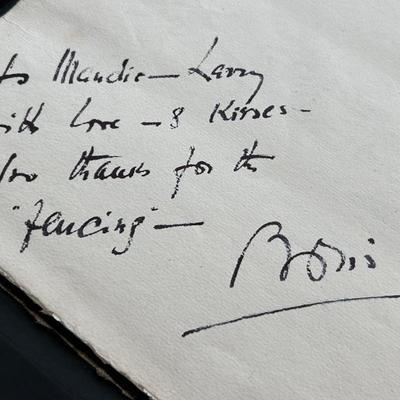 to Maudie — Larry
with love — & Kisses —
Also thanks for the
"fencing" —
Boris